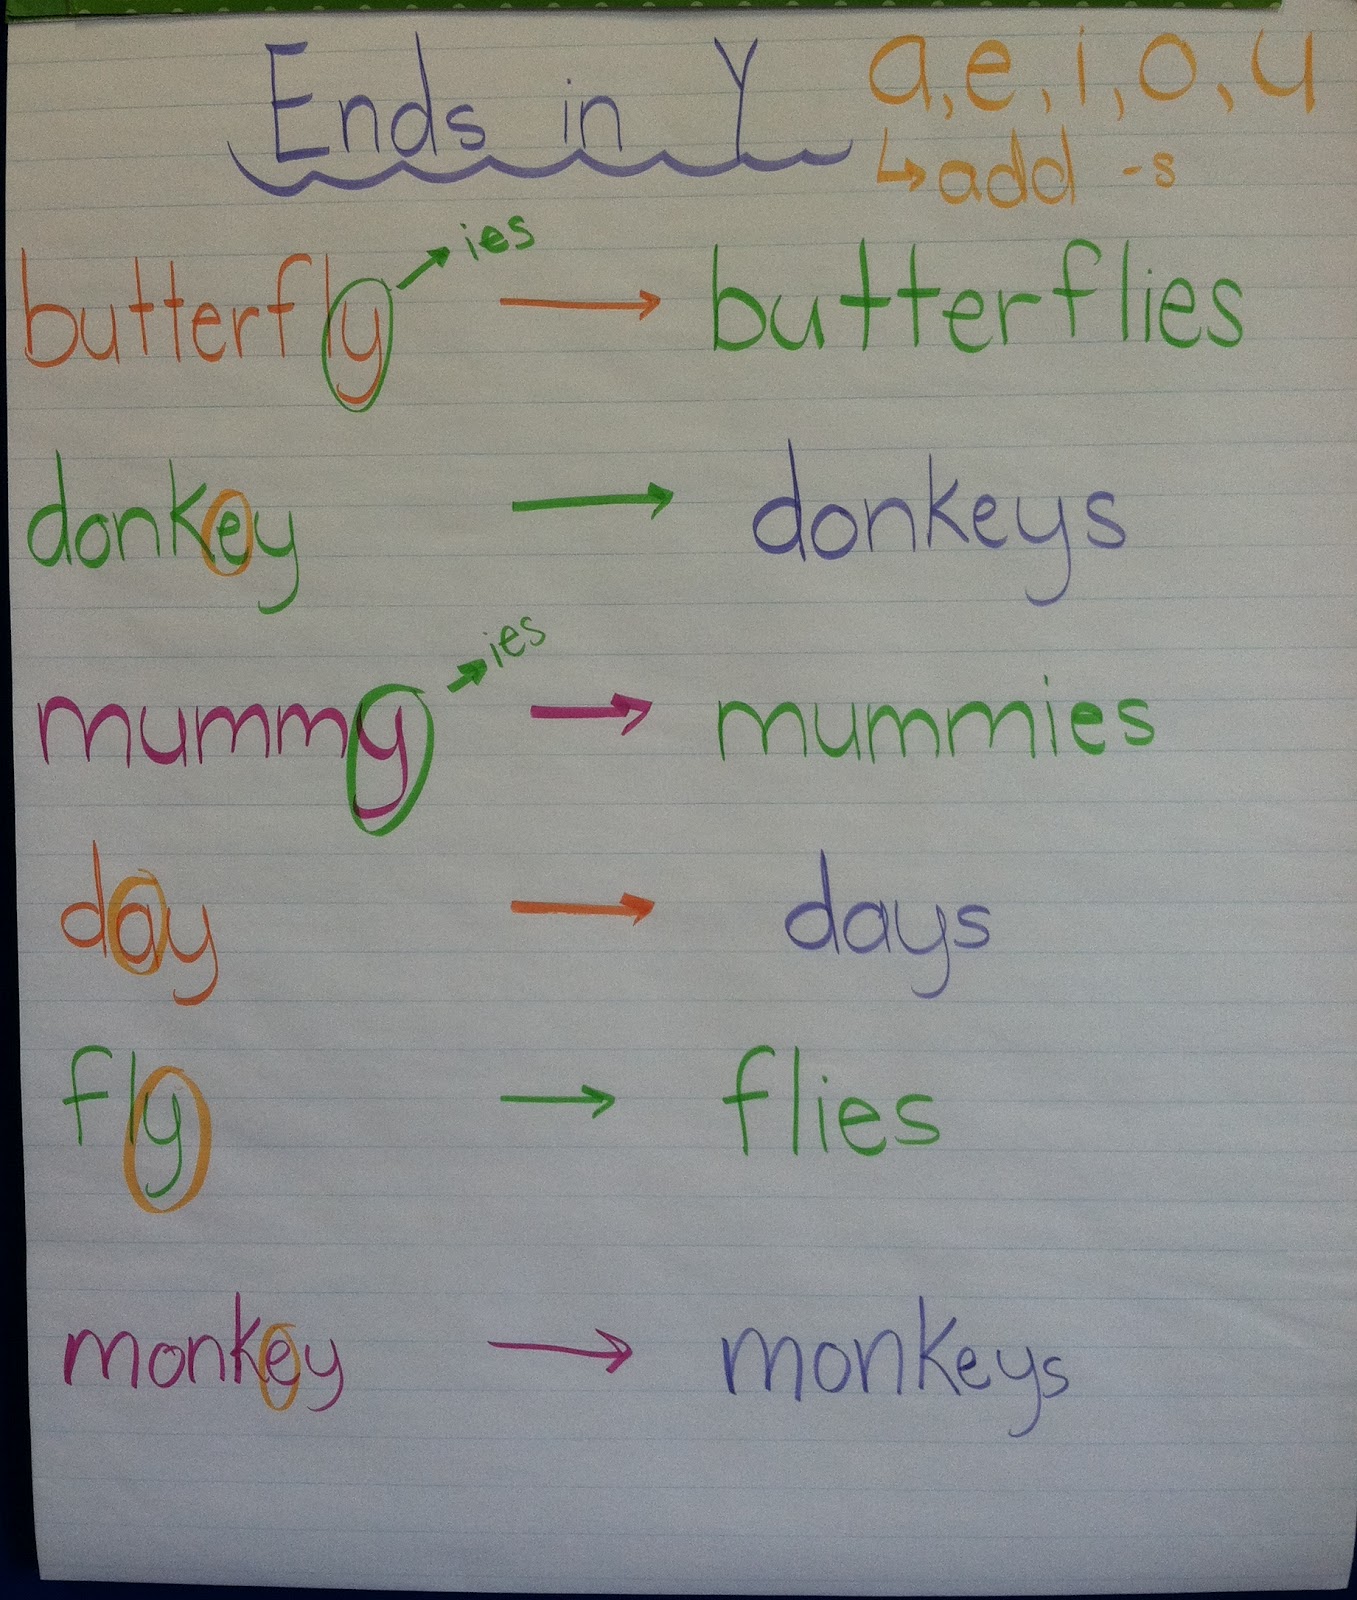 Ends in Y a, e, i, o, u
↳ add -s
butterfly → ies → butterflies
donkey → donkeys
mummy → ies → mummies
day → days
fly → flies
monkey → monkeys